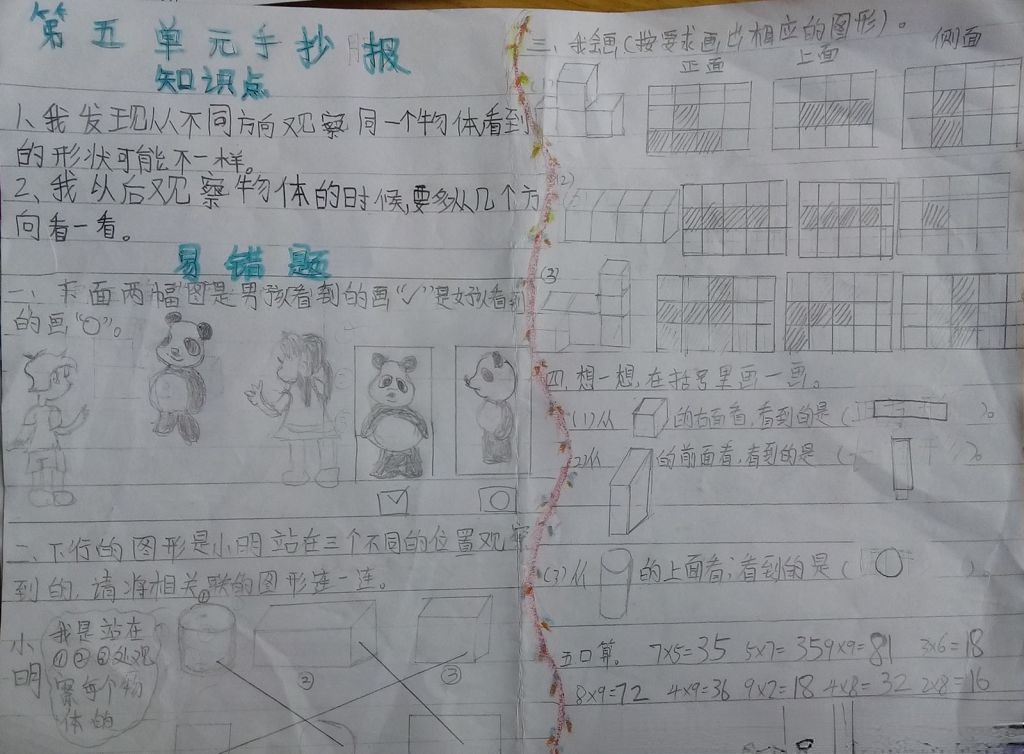 第五单元手抄报
知识点
1、我发现从不同方向观察同一个物体看到
的形状可能不一样。
2、我以后观察物体的时候,要多从几个方
向看一看。
易错题
一、下面两幅图是男孩看到的画“√”是女孩看到
的画“○”。
二、下行的图形是小明站在三个不同的位置观察
到的,请将相关联的图形连一连。
小明
我是站在
①②③处观
察每个物
体的
①
②
③
三、我会画(按要求画出相应的图形)。
正面 上面 侧面
(1)
(2)
(3)
四、想一想,在括号里画一画。
(1)从 的右面看,看到的是( )。
(2)从 的前面看,看到的是( )。
(3)从 的上面看,看到的是( )。
五口算。 7×5=35 5×7=35 9×9=81 3×6=18
8×9=72 4×9=36 9×2=18 4×8=32 2×8=16